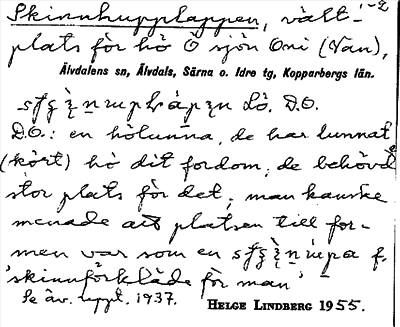 Skinnhupplappen, vält- 1-2
plats för hö Ö sjön Oni (Van),
Älvdalens sn, Älvdals, Särna o. Idre tg, Kopparbergs län.
Lö. D.O.
D.O: en hölunna, de har lunnat
(kört) hö dit fordom; de behövde
stor plats för det; man kanske
menade att platsen till for-
men var som en f.
'skinnförkläde för man'
Se äv. uppt. 1937. HELGE LINDBERG 1955.